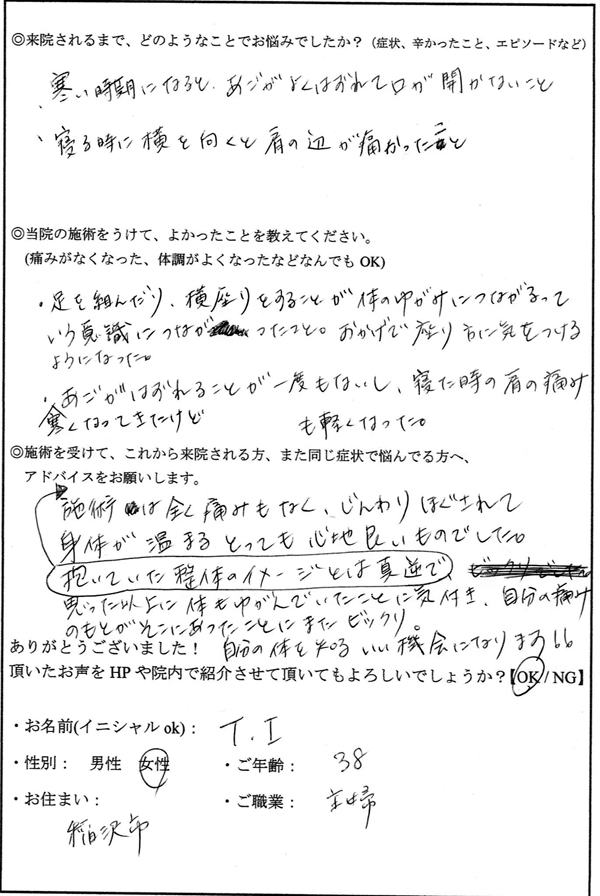 ◎来院されるまで、どのようなことでお悩みでしたか？（症状、辛かったこと、エピソードなど）
・寒い時期になると、あごがよくはずれて口が開かないこと
・寝る時に横を向くと肩の辺が痛かったこと
◎当院の施術をうけて、よかったことを教えてください。
(痛みがなくなった、体調がよくなったなどなんでも OK)
・足を組んだり、横座りをすることが体のゆがみにつながるって
いう意識につながったこと。おかげで座り方に気をつける
ようになった。
・あごがはずれることが一度もないし、寝た時の肩の痛み
寒くなってきたけど も軽くなった。
◎施術を受けて、これから来院される方、また同じ症状で悩んでる方へ、
アドバイスをお願いします。
施術は全く痛みもなく、じんわりほぐされて
身体が温まるとっても心地良いものでした。
抱いていた整体のイメージとは真逆で、ビックリでした
思った以上に体もゆがんでいたことに気付き、自分の痛み
のもとがそこにあったことにまたビックリ。
ありがとうございました！ 自分の体を知るいい機会になります！！
頂いたお声を HP や院内で紹介させて頂いてもよろしいでしょうか？【OK / NG】
・お名前(イニシャル ok)： T.I
・性別： 男性 女性 ・ご年齢： 38
・お住まい： ・ご職業： 主婦
稲沢市